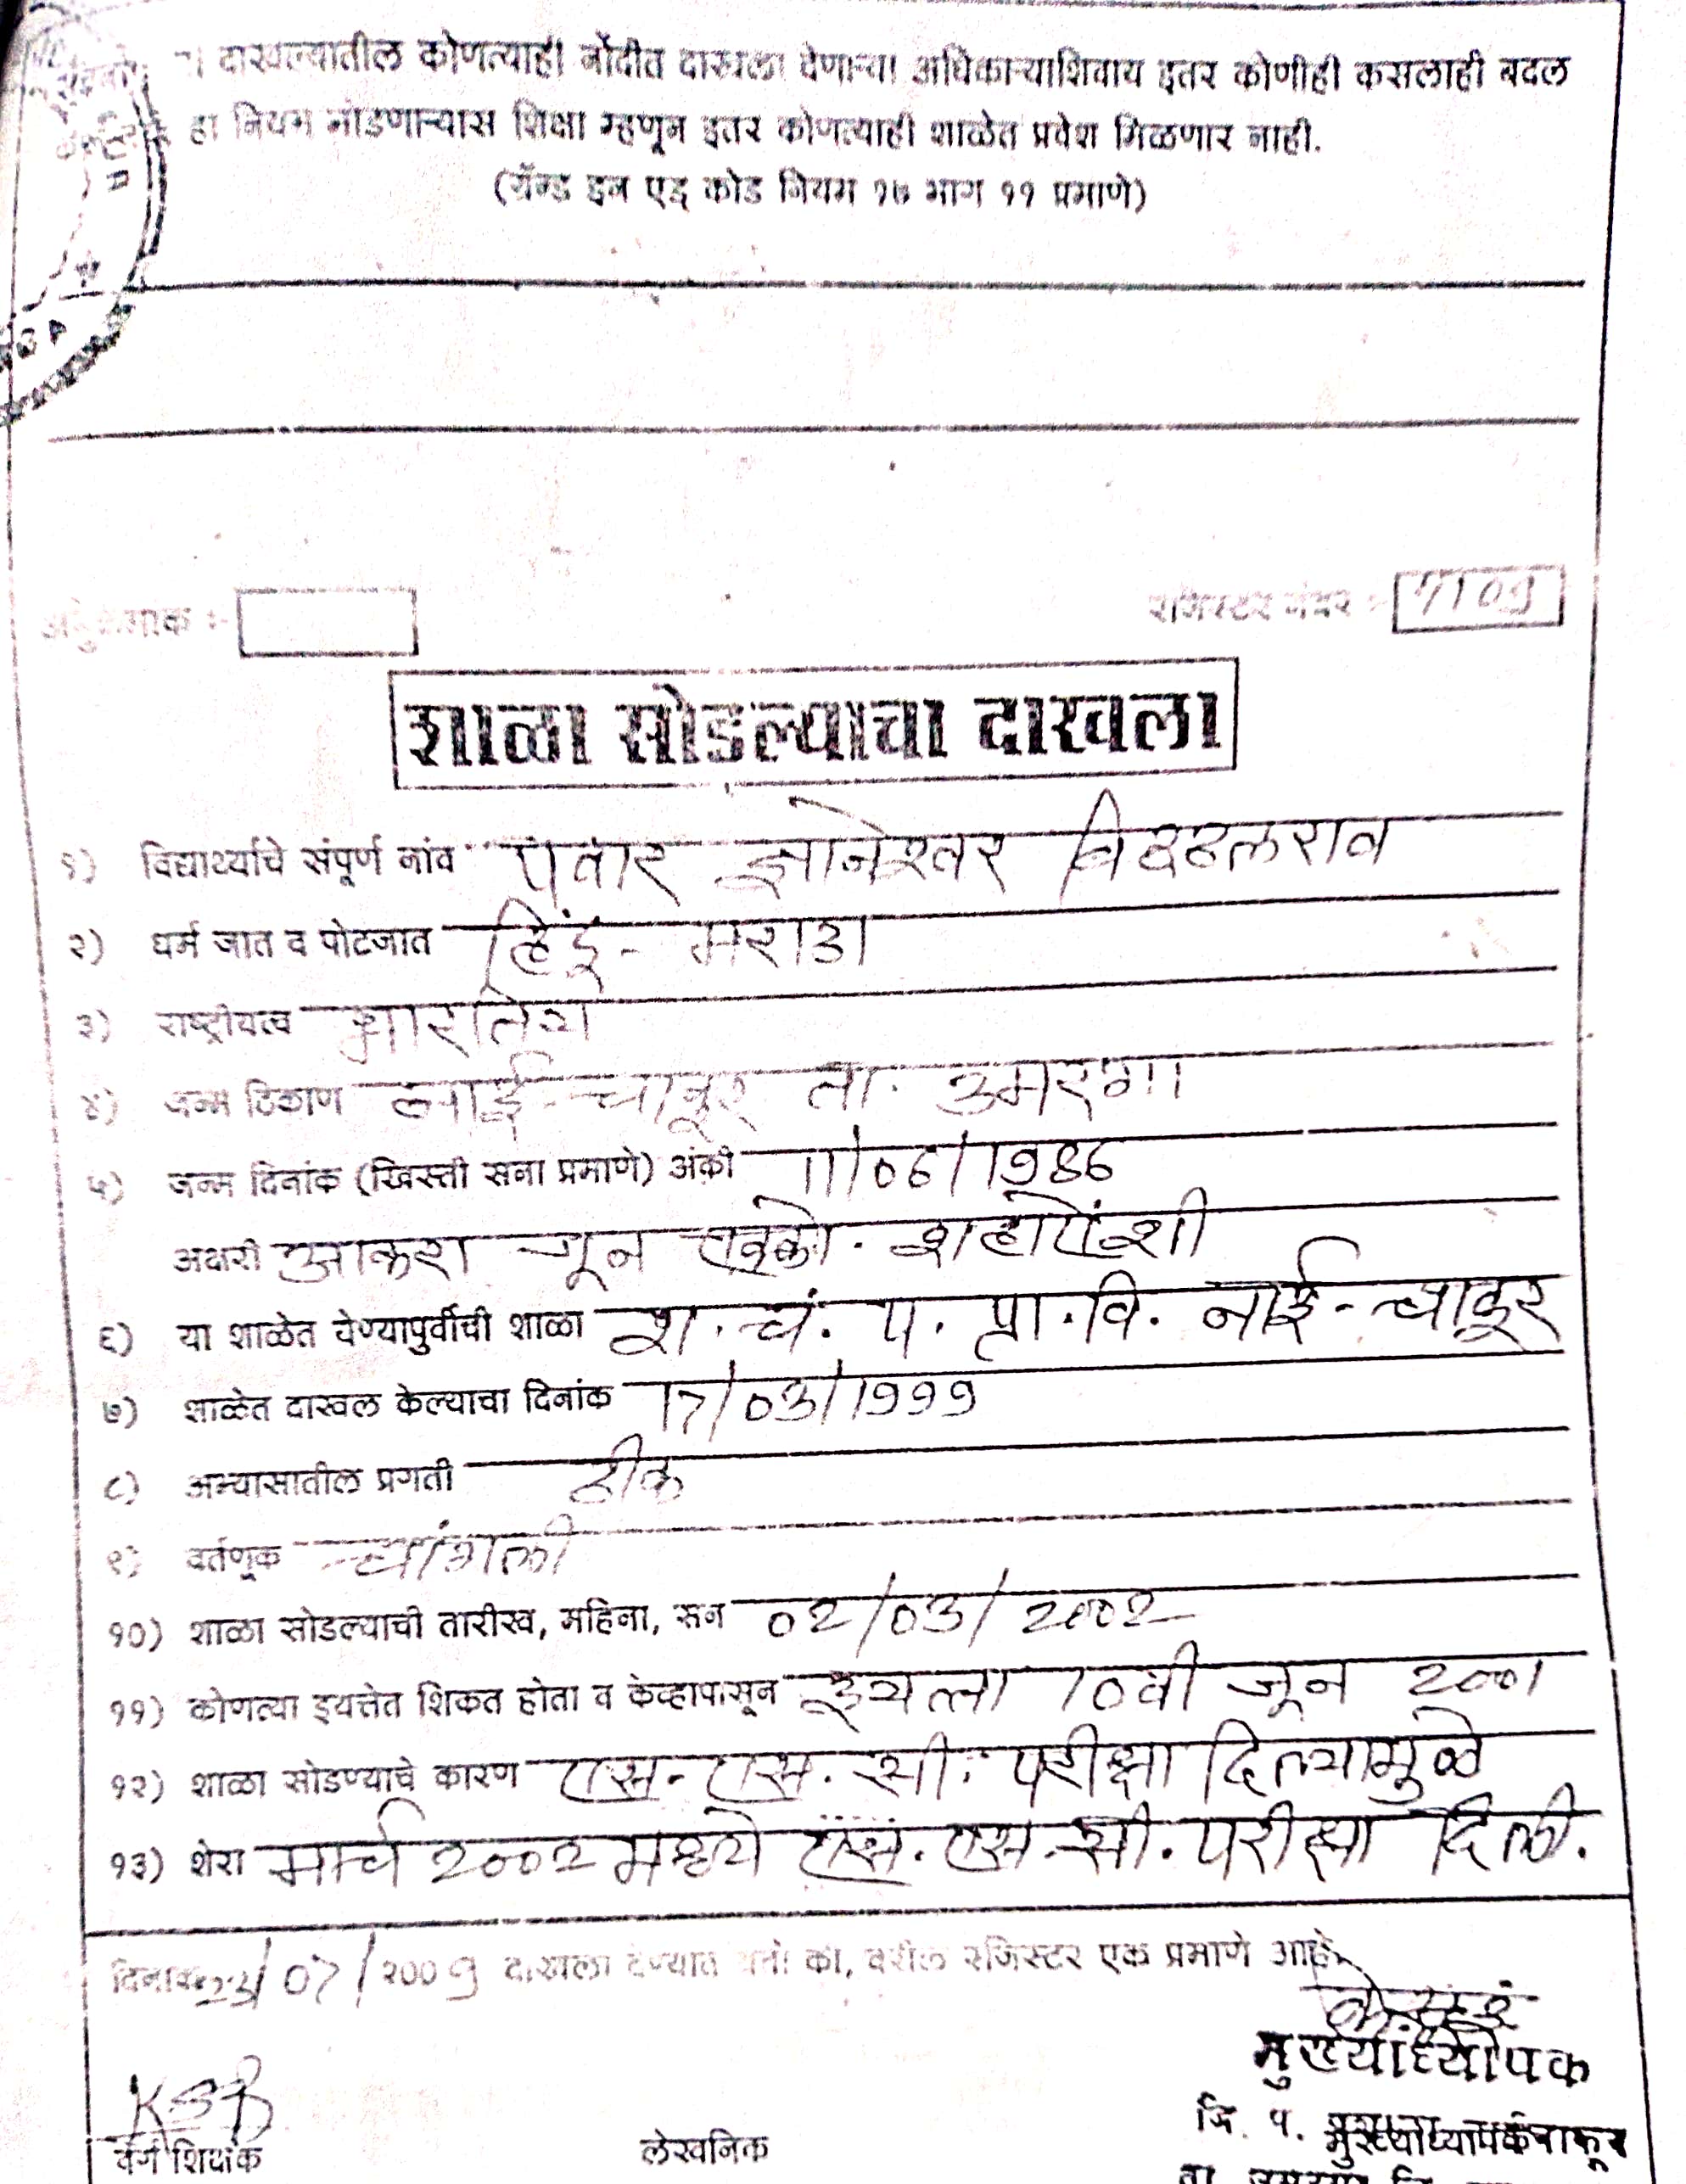 दाखल्यातील कोणत्याही नोंदीत दाखला देणाऱ्या अधिकाऱ्याशिवाय इतर कोणीही कसलाही बदल
हा नियम मोडणाऱ्यास शिक्षा म्हणून इतर कोणत्याही शाळेत प्रवेश मिळणार नाही.
(ग्रॅन्ड इन एड् कोड नियम १७ भाग ११ प्रमाणे)
अनुक्रमांक :- रजिस्टर नंबर :- 7109
शाळा सोडल्याचा दाखला
१) विद्यार्थ्याचे संपूर्ण नांव पवार ज्ञानेश्वर विठ्ठलराव
२) धर्म जात व पोटजात हिंदू - मराठा
३) राष्ट्रीयत्व भारतिय
४) जन्म ठिकाण नाई-चाकूर ता. उमरगा
५) जन्म दिनांक (ख्रिस्ती सना प्रमाणे) अंकी 11/06/1986
अक्षरी आकरा जून एकोणीसशे शहाऐंशी
६) या शाळेत येण्यापुर्वीची शाळा श. चं. प. प्रा. वि. नाई-चाकूर
७) शाळेत दाखल केल्याचा दिनांक 17/03/1999
८) अभ्यासातील प्रगती ठीक
९) वर्तणूक चांगली
१०) शाळा सोडल्याची तारीख, महिना, सन 02/03/2002
११) कोणत्या इयत्तेत शिकत होता व केव्हापासून इयत्ता 10वी जून 2001
१२) शाळा सोडण्याचे कारण एस. एस. सी. परीक्षा दिल्यामुळे
१३) शेरा मार्च 2002 मध्ये एस. एस. सी. परीक्षा दिली.
दिनांक /07/2009 दाखला देण्यात येतो की, वरील रजिस्टर एक प्रमाणे आहे.
मुख्याध्यापक
वर्ग शिक्षक लेखनिक जि. प.